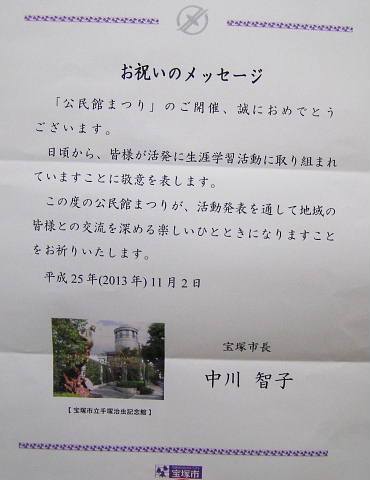 お祝いのメッセージ
「公民館まつり」のご開催、誠におめでとう
ございます。
日頃から、皆様が活発に生涯学習活動に取り組まれ
ていますことに敬意を表します。
この度の公民館まつりが、活動発表を通して地域の
皆様との交流を深める楽しいひとときになりますこと
をお祈りいたします。
平成25年(2013年)11月2日
宝塚市長
中川 智子
【 宝塚市立手塚治虫記念館 】
宝塚市